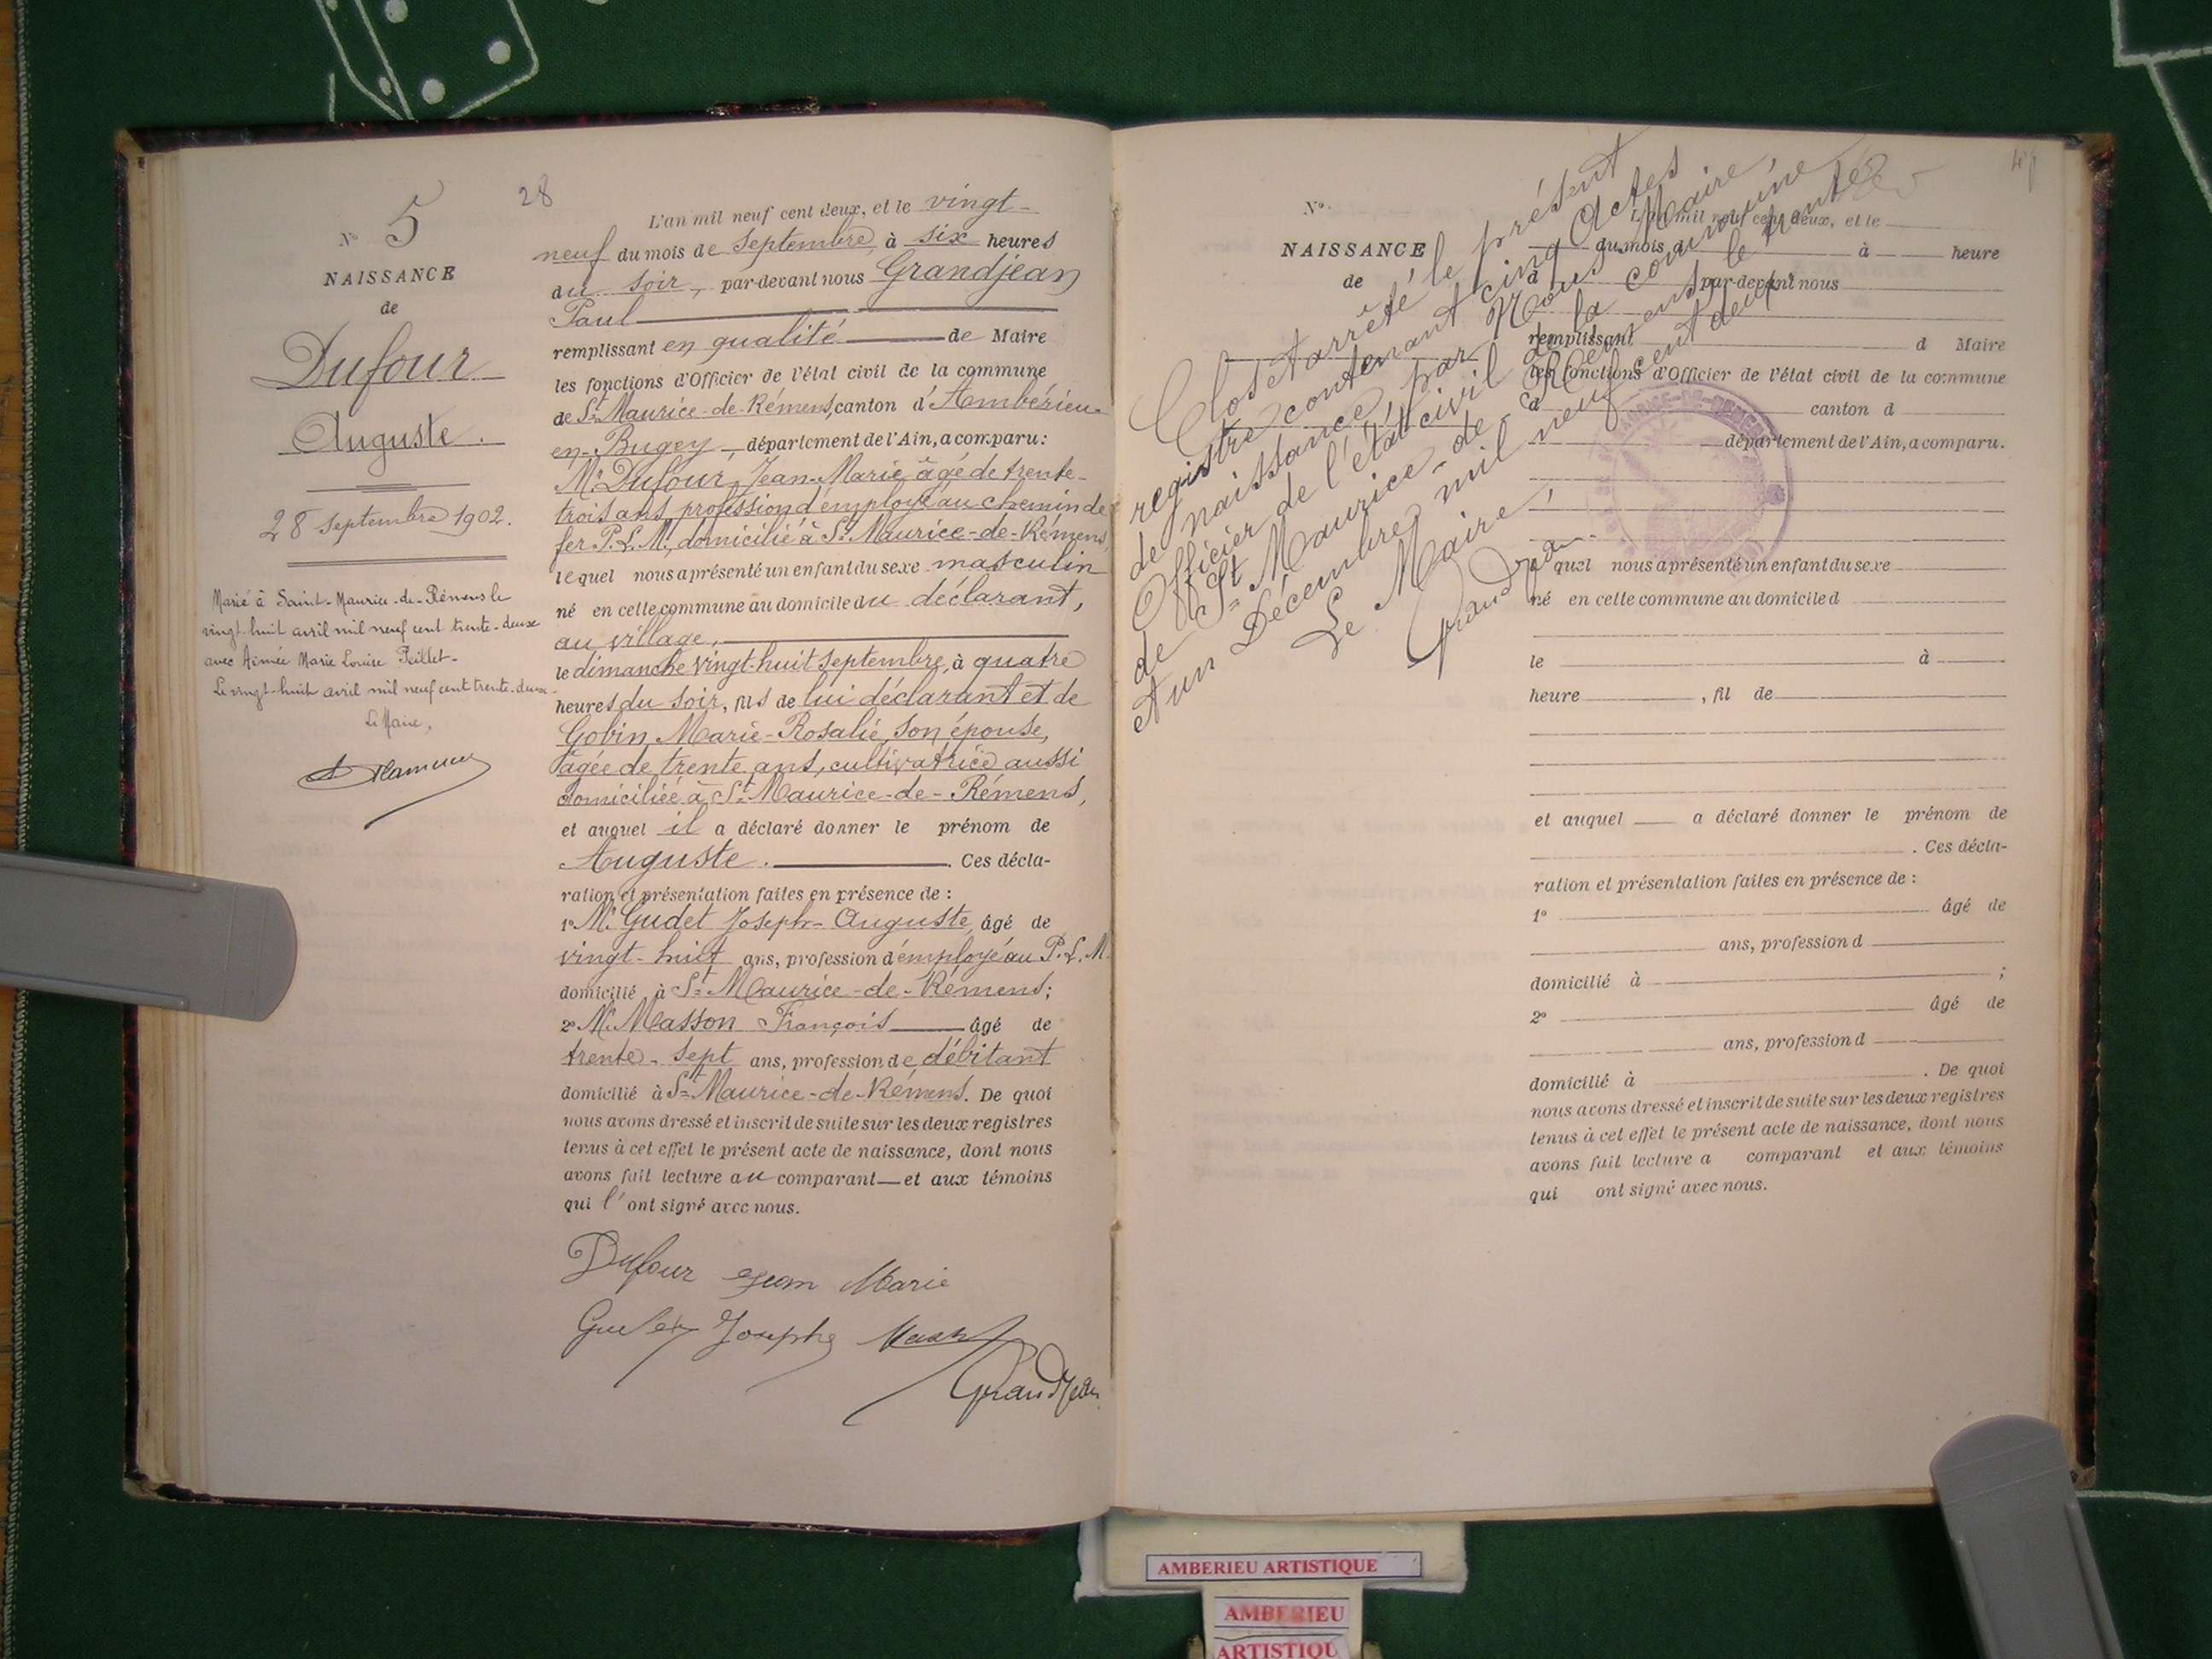 28
Nº 5
NAISSANCE
de
Dufour
Auguste.
28 septembre 1902.
Marié à Saint-Maurice-de-Rémens le
vingt-huit avril mil neuf cent trente-deux
avec Aimée Marie Louise
Le vingt-huit avril mil neuf cent trente-deux.
Le Maire,
L'an mil neuf cent deux, et le vingt-
neuf du mois de septembre, à six heures
du soir, par-devant nous Grandjean
Paul
remplissant en qualité de Maire
les fonctions d'Officier de l'état civil de la commune
de St Maurice-de-Rémens, canton d'Ambérieu-
en-Bugey, département de l'Ain, a comparu:
Mr Dufour, Jean-Marie, âgé de trente-
trois ans, profession d'employé au chemin de
fer P.L.M., domicilié à St Maurice-de-Rémens,
lequel nous a présenté un enfant du sexe masculin
né en cette commune au domicile du déclarant,
au village,
le dimanche vingt-huit septembre, à quatre
heures du soir, fils de lui déclarant et de
Gobin, Marie-Rosalie, son épouse,
âgée de trente ans, cultivatrice aussi
domiciliée à St Maurice-de-Rémens,
et auquel il a déclaré donner le prénom de
Auguste. Ces décla-
ration et présentation faites en présence de :
1º Mr Gudet Joseph-Auguste, âgé de
vingt-huit ans, profession d'employé au P.L.M.
domicilié à St Maurice-de-Rémens;
2º Mr Masson François âgé de
trente-sept ans, profession de débitant
domicilié à St Maurice-de-Rémens. De quoi
nous avons dressé et inscrit de suite sur les deux registres
tenus à cet effet le présent acte de naissance, dont nous
avons fait lecture au comparant et aux témoins
qui l'ont signé avec nous.
Dufour Jean Marie
Gudet Josephe Masson
Grandjean
Clos et arrêté le présent
registre contenant cinq actes
de naissance, par Nous Maire,
Officier de l'état civil de la commune
de St Maurice-de-Rémens, le trente
et un Décembre mil neuf cent deux.
Le Maire,
Grandjean
Nº
NAISSANCE
de
L'an mil neuf cent deux, et le
du mois d à heure
d par-devant nous
remplissant d Maire
les fonctions d'Officier de l'état civil de la commune
d canton d
département de l'Ain, a comparu.
quel nous a présenté un enfant du sexe
né en cette commune au domicile d
le à
heure , fil de
et auquel a déclaré donner le prénom de
. Ces décla-
ration et présentation faites en présence de :
1º âgé de
ans, profession d
domicilié à ;
2º âgé de
ans, profession d
domicilié à . De quoi
nous avons dressé et inscrit de suite sur les deux registres
tenus à cet effet le présent acte de naissance, dont nous
avons fait lecture a comparant et aux témoins
qui ont signé avec nous.
AMBERIEU ARTISTIQUE
AMBERIEU
ARTISTIQU